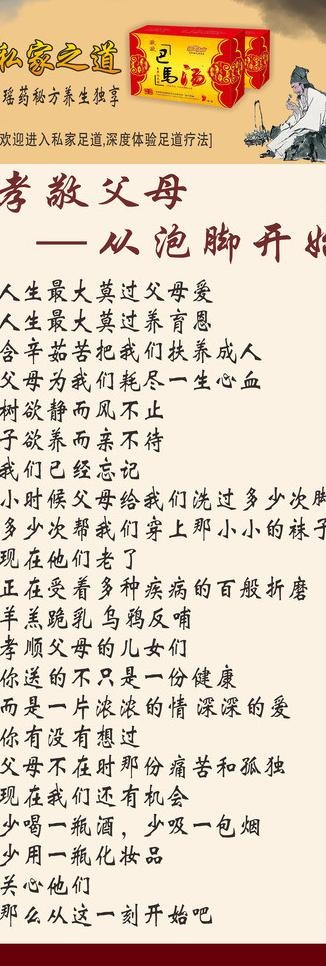 私家之道
瑶药秘方养生独享
巴馬汤
欢迎进入私家足道,深度体验足道疗法]
孝敬父母
——从泡脚开始
人生最大莫过父母爱
人生最大莫过养育恩
含辛茹苦把我们扶养成人
父母为我们耗尽一生心血
树欲静而风不止
子欲养而亲不待
我们已经忘记
小时候父母给我们洗过多少次脚
多少次帮我们穿上那小小的袜子
现在他们老了
正在受着多种疾病的百般折磨
羊羔跪乳 乌鸦反哺
孝顺父母的儿女们
你送的不只是一份健康
而是一片浓浓的情 深深的爱
你有没有想过
父母不在时那份痛苦和孤独
现在我们还有机会
少喝一瓶酒，少吸一包烟
少用一瓶化妆品
关心他们
那么从这一刻开始吧